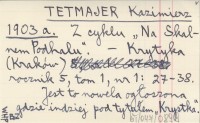 TETMAJER Kazimierz
1903 a. Z cyklu „Na Skal-
nem Podhalu". – Krytyka
(Kraków)
rocznik 5, tom 1, nr 1: 27-38.
Jest to nowela ogłoszona
gdzie indziej pod tytułem „Krystka".